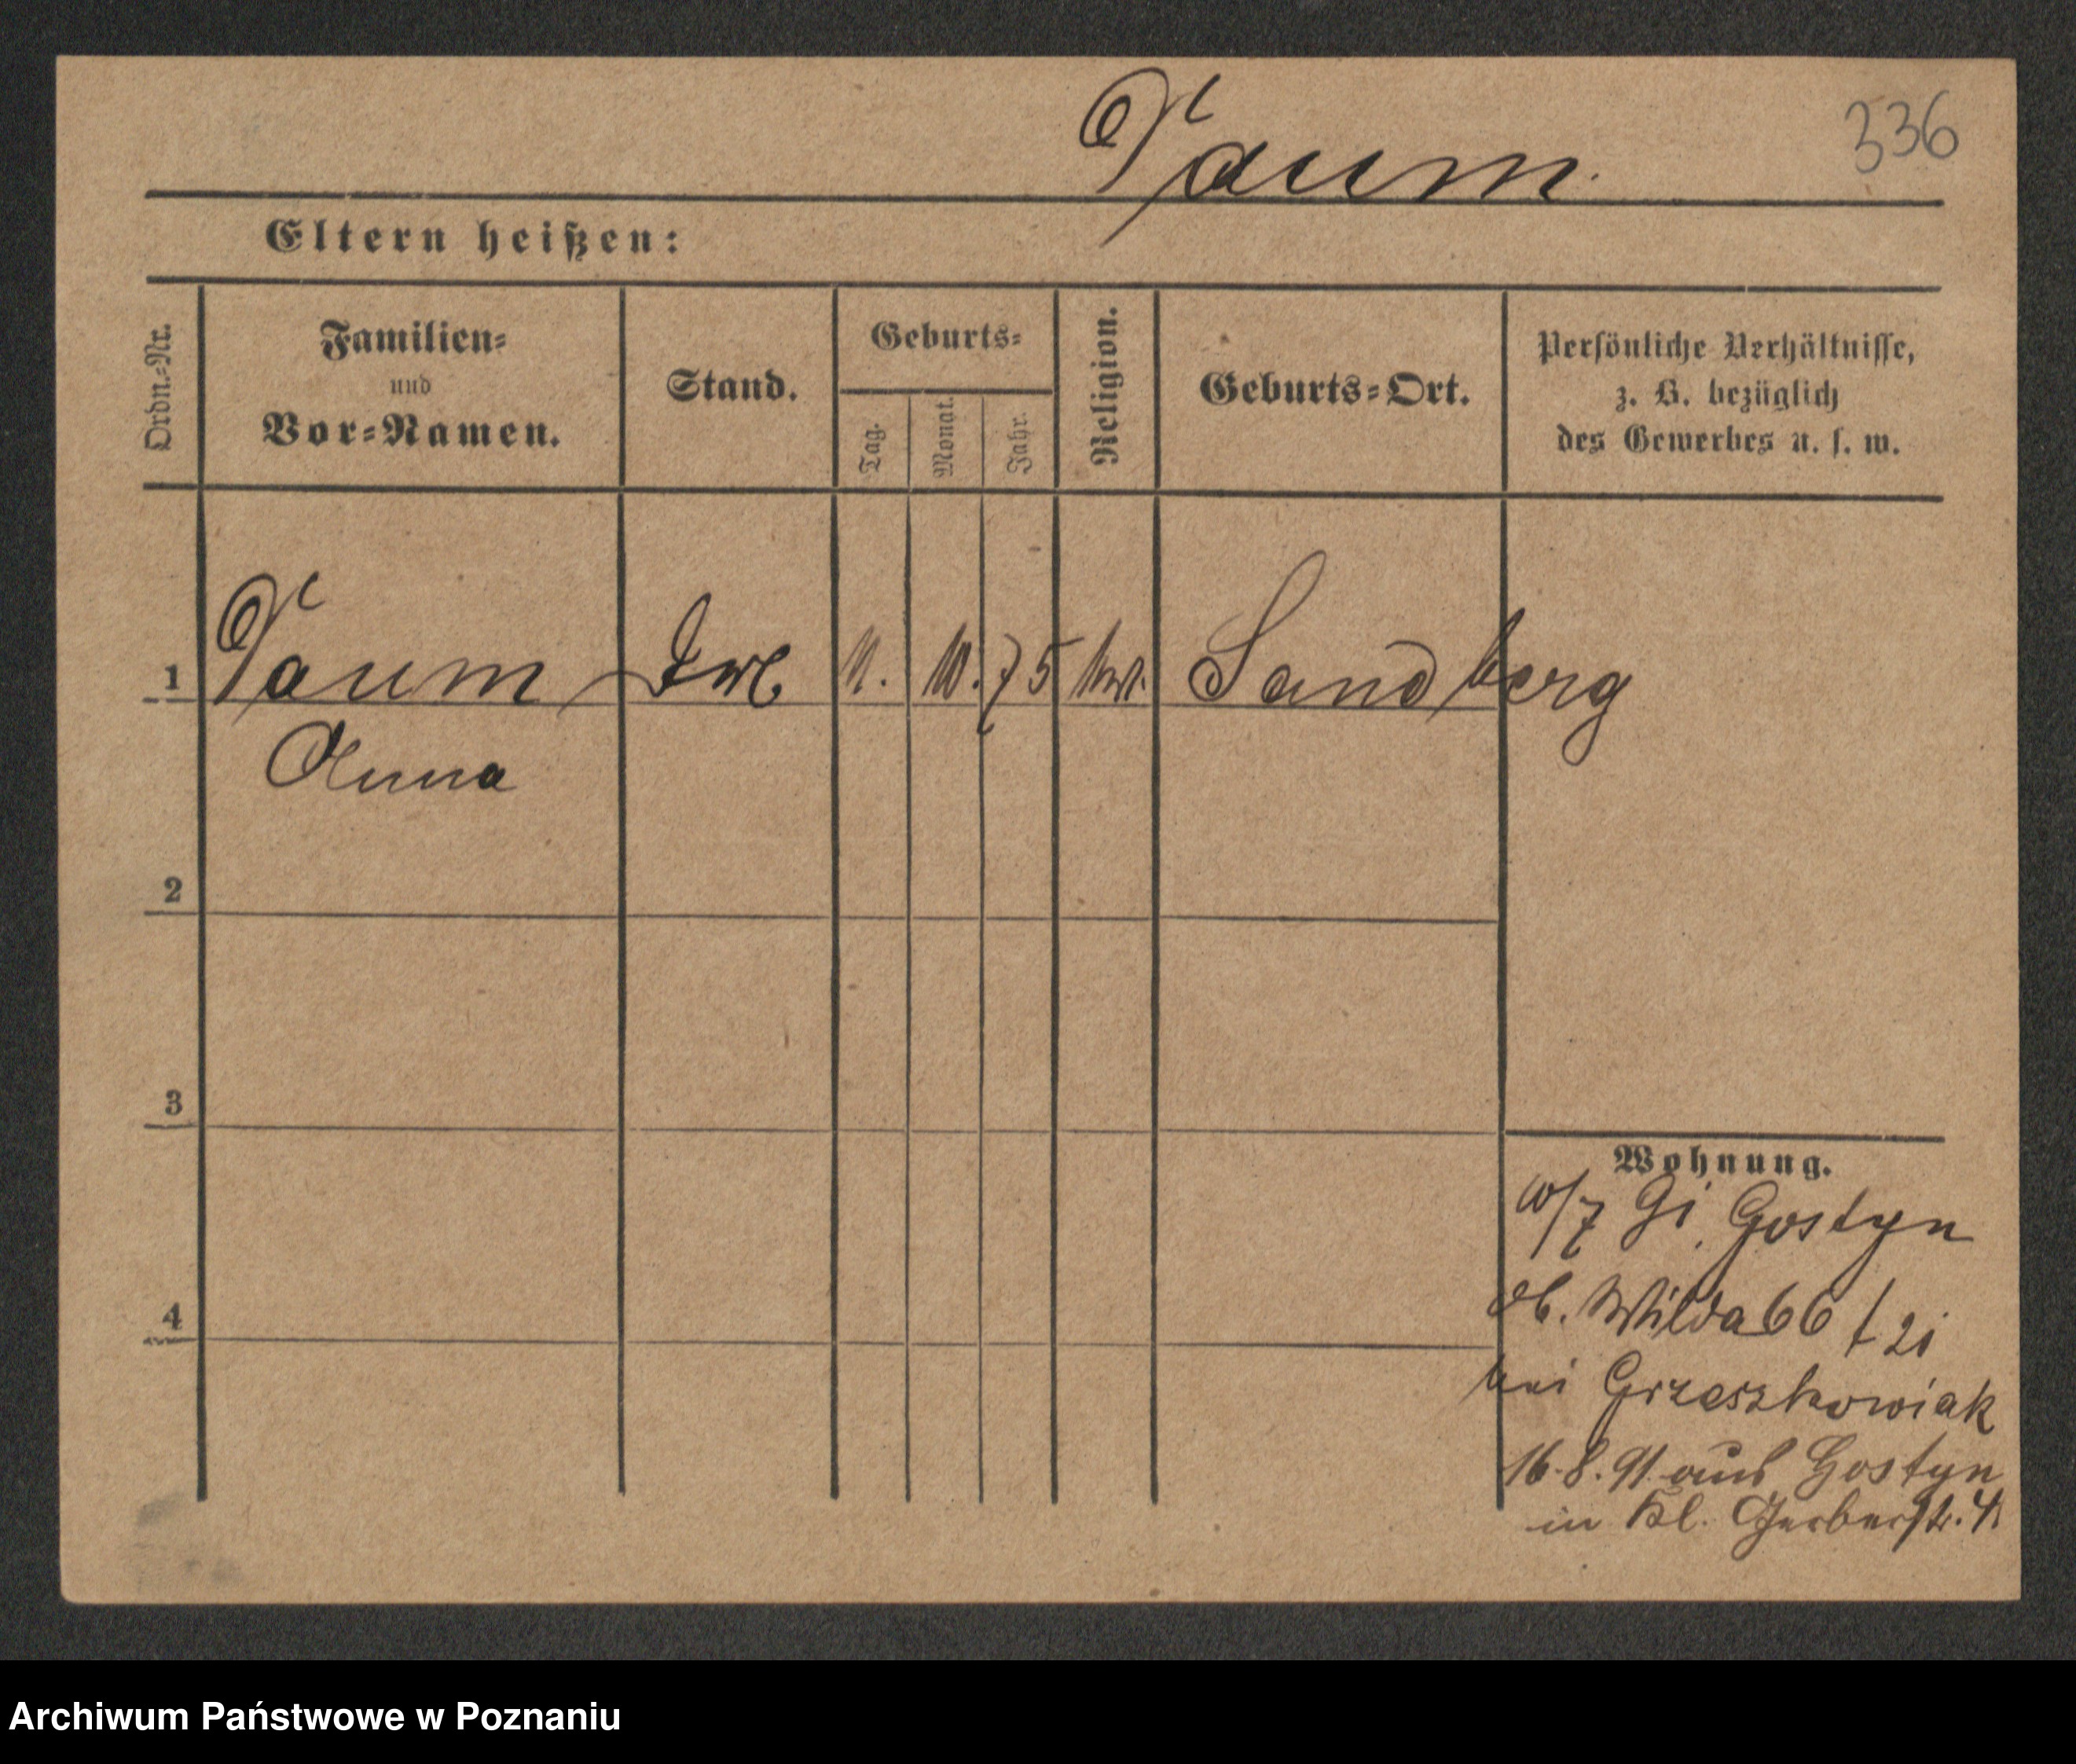 Taum.
336
Eltern heißen:
Ordn.-Nr.
Familien-
und
Vor-Namen.
Stand.
Geburts-
Tag.
Monat.
Jahr.
Religion.
Geburts-Ort.
Persönliche Verhältnisse,
z. B. bezüglich
des Gewerbes u. s. w.
1 Taum 75 Sandberg
Anna
2
3
4
Wohnung.
Gostyn
Wilda 66
bei Grzeszkowiak
16.8.91 aus Gostyn
in Kl. Gerberstr. 4
Archiwum Państwowe w Poznaniu